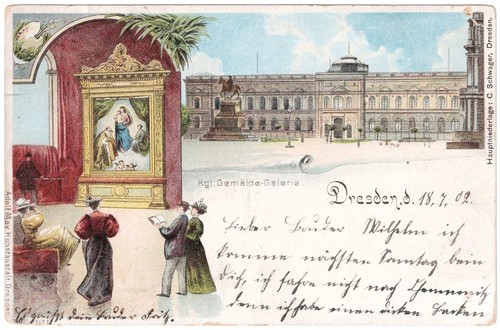 Kgl. Gemälde-Galerie
Dresden, d. 18.7.02.
Lieber Bruder Wilhelm ich
komme nächsten Sonntag beim
Dich, ich fahre nicht nach Chemmnitz
denn ich habe einen dicken Backen
Es grüßt dein Bruder Fritz.
Adolf May, Kunstanstalt, Dresden
Hauptniederlage: C. Schwager, Dresden.